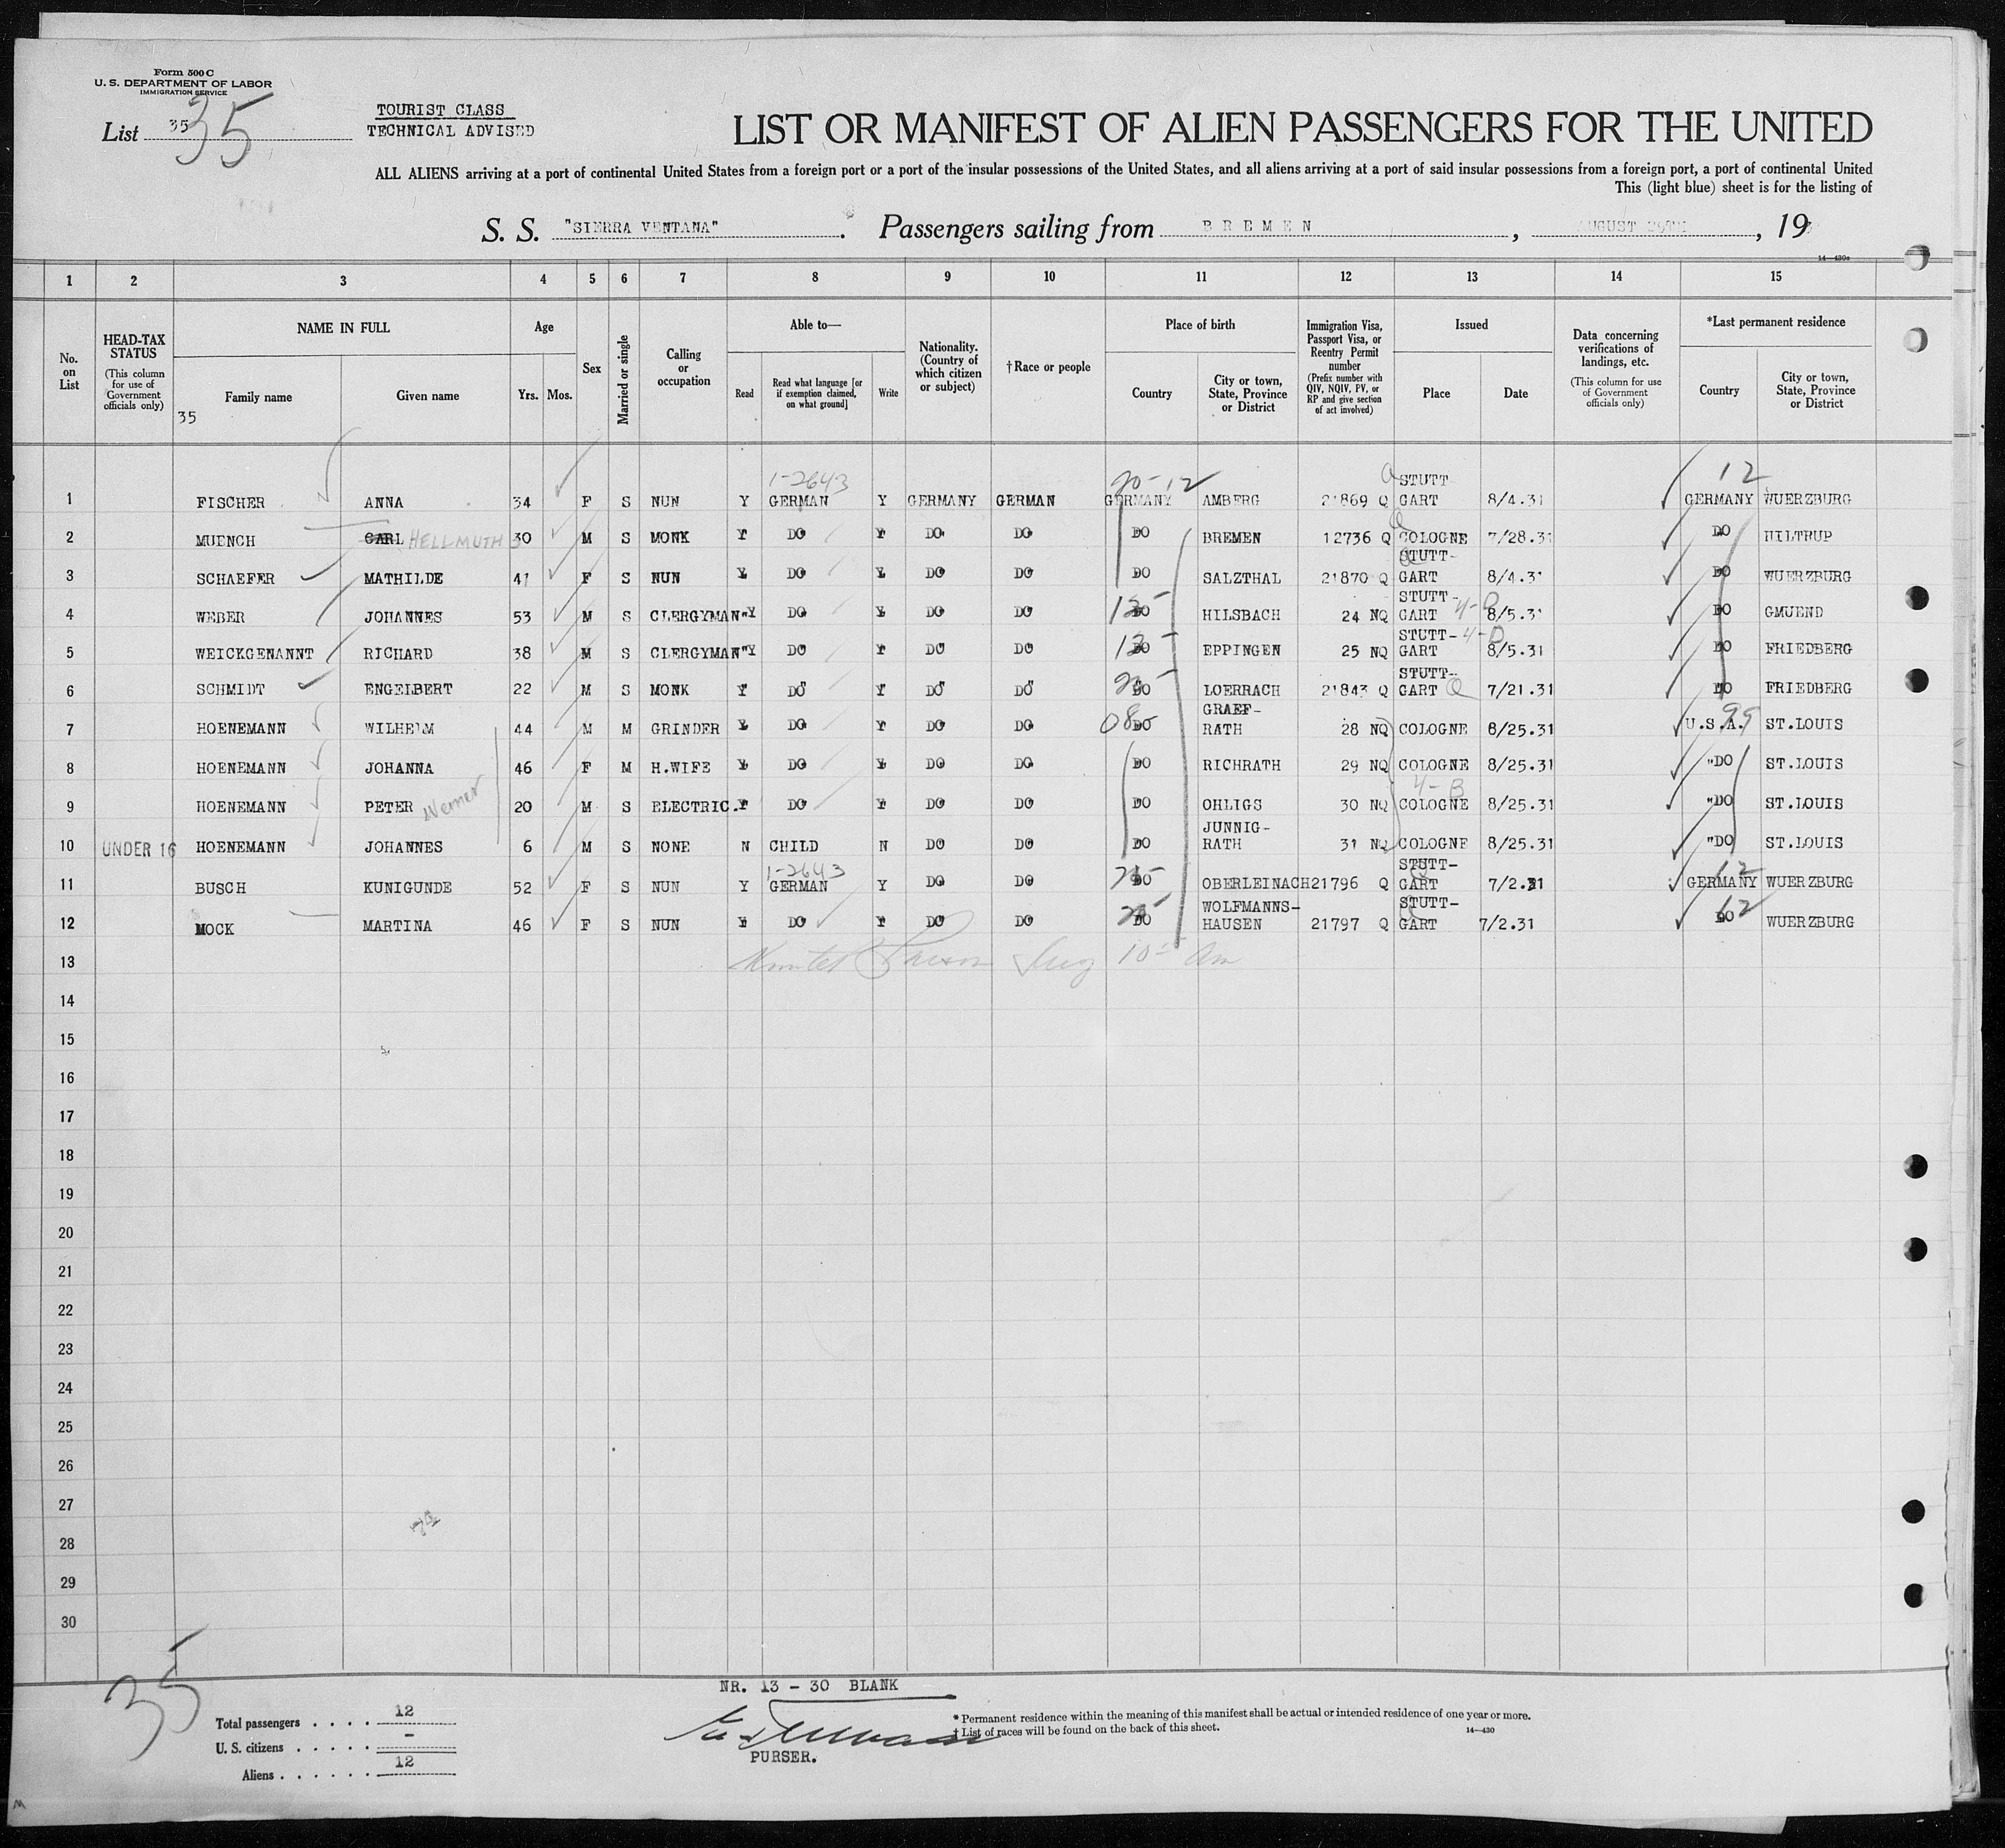 Form 500 C
U. S. DEPARTMENT OF LABOR
IMMIGRATION SERVICE
List 35
35
TOURIST CLASS
TECHNICAL ADVISED
LIST OR MANIFEST OF ALIEN PASSENGERS FOR THE UNITED
ALL ALIENS arriving at a port of continental United States from a foreign port or a port of the insular possessions of the United States, and all aliens arriving at a port of said insular possessions from a foreign port, a port of continental United
This (light blue) sheet is for the listing of
S. S. "SIERRA VENTANA". Passengers sailing from BREMEN, AUGUST 29TH, 19
14—430a
1 2 3 4 5 6 7 8 9 10 11 12 13 14 15
No. on List
HEAD-TAX STATUS (This column for use of Government officials only)
NAME IN FULL
Family name
Given name
35
Age
Yrs. Mos.
Sex
Married or single
Calling or occupation
Able to—
Read
Read what language [or if exemption claimed, on what ground]
Write
Nationality. (Country of which citizen or subject)
† Race or people
Place of birth
Country
City or town, State, Province or District
Immigration Visa, Passport Visa, or Reentry Permit number (Prefix number with QIV, NQIV, PV, or RP and give section of act involved)
Issued
Place
Date
Data concerning verifications of landings, etc. (This column for use of Government officials only)
*Last permanent residence
Country
City or town, State, Province or District
1-2643 20-12 Q STUTT- 12
1 FISCHER ANNA 34 F S NUN Y GERMAN Y GERMANY GERMAN GERMANY AMBERG 21869 Q GART 8/4.31 GERMANY WUERZBURG
2 MUENCH CARL HELLMUTH 30 M S MONK Y DO Y DO DO DO BREMEN 12736 Q COLOGNE 7/28.31 DO HILTRUP
STUTT-
3 SCHAEFER MATHILDE 41 F S NUN Y DO Y DO DO DO SALZTHAL 21870 Q GART 8/4.31 DO WUERZBURG
STUTT-
4 WEBER JOHANNES 53 M S CLERGYMAN" Y DO Y DO DO DO HILSBACH 24 NQ GART 4-D 8/5.31 DO GMUEND
STUTT- 4-D
5 WEICKGENANNT RICHARD 38 M S CLERGYMAN" Y DO Y DO DO DO EPPINGEN 25 NQ GART 8/5.31 DO FRIEDBERG
STUTT-
6 SCHMIDT ENGELBERT 22 M S MONK Y DO Y DO DO DO LOERRACH 21843 Q GART Q 7/21.31 DO FRIEDBERG
GRAEF-
7 HOENEMANN WILHELM 44 M M GRINDER Y DO Y DO DO 08 DO RATH 28 NQ COLOGNE 8/25.31 U.S.A. 99 ST.LOUIS
8 HOENEMANN JOHANNA 46 F M H.WIFE Y DO Y DO DO DO RICHRATH 29 NQ COLOGNE 8/25.31 "DO ST.LOUIS
4-B
9 HOENEMANN PETER Werner 20 M S ELECTRIC. Y DO Y DO DO DO OHLIGS 30 NQ COLOGNE 8/25.31 "DO ST.LOUIS
JUNNIG-
10 UNDER 16 HOENEMANN JOHANNES 6 M S NONE N CHILD N DO DO DO RATH 31 NQ COLOGNE 8/25.31 "DO ST.LOUIS
1-2643 STUTT- 12
11 BUSCH KUNIGUNDE 52 F S NUN Y GERMAN Y DO DO DO OBERLEINACH 21796 Q GART 7/2.31 GERMANY WUERZBURG
WOLFMANNS- STUTT- 12
12 MOCK MARTINA 46 F S NUN Y DO Y DO DO DO HAUSEN 21797 Q GART 7/2.31 DO WUERZBURG
13
14
15
16
17
18
19
20
21
22
23
24
25
26
27
28
29
30
35
NR. 13 - 30 BLANK
Total passengers . . . . 12
U. S. citizens . . . . . -
Aliens . . . . . . 12
PURSER.
* Permanent residence within the meaning of this manifest shall be actual or intended residence of one year or more.
† List of races will be found on the back of this sheet.
14—430